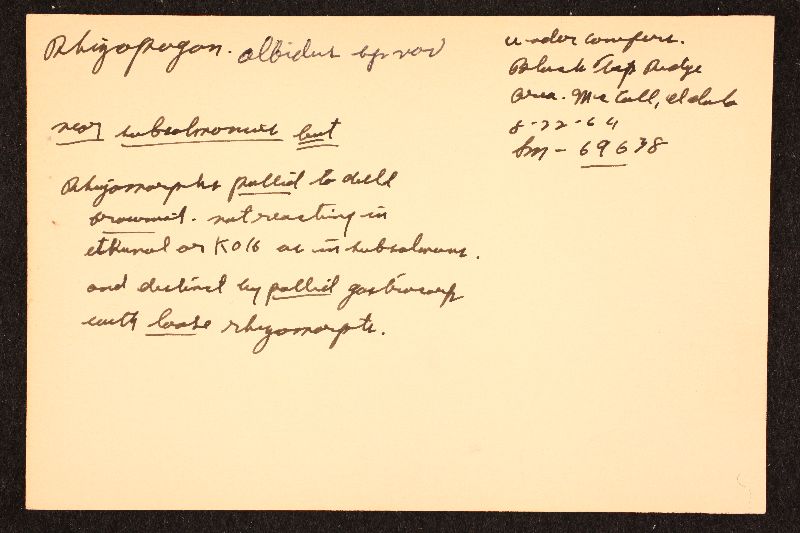 Rhizopogon. albidus sp nov
under conifers.
Black Tap Ridge
area. McCall, Idaho
8-22-64
Sm - 69638
near subsalmonius but
Rhizomorphs pallid to dull
brownish. not reacting in
ethanol or KOH as in subsalmonius.
and distinct by pallid gastrocarp
with loose rhizomorphs.